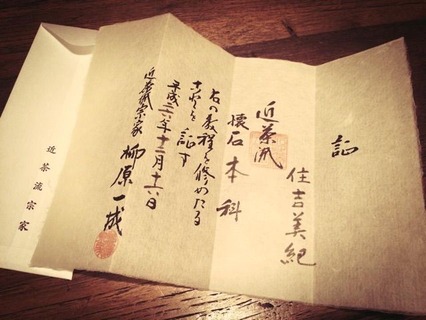 証
住吉美紀
近茶流
懐石本科
右の教程を修めたる
ことを証す
平成二六年十二月十六日
近茶流宗家 柳原一成
近茶流宗家